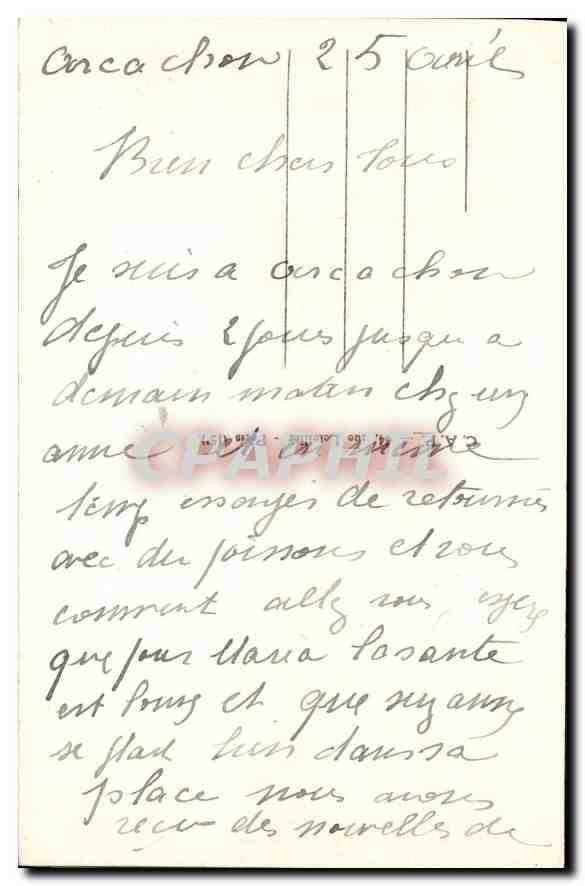 Arcachon 25 avril
Bien chers tous
Je suis a arcachon
depuis 2 jours jusqu a
demain matin chez une
amie et en meme
temp essayer de retourner
avec du poissons et vous
comment allez vous, espere
que pour Maria la sante
est bonne et que suzanne
se plait bien dans sa
place nous avons
reçu des nouvelles de
CPAPHIL